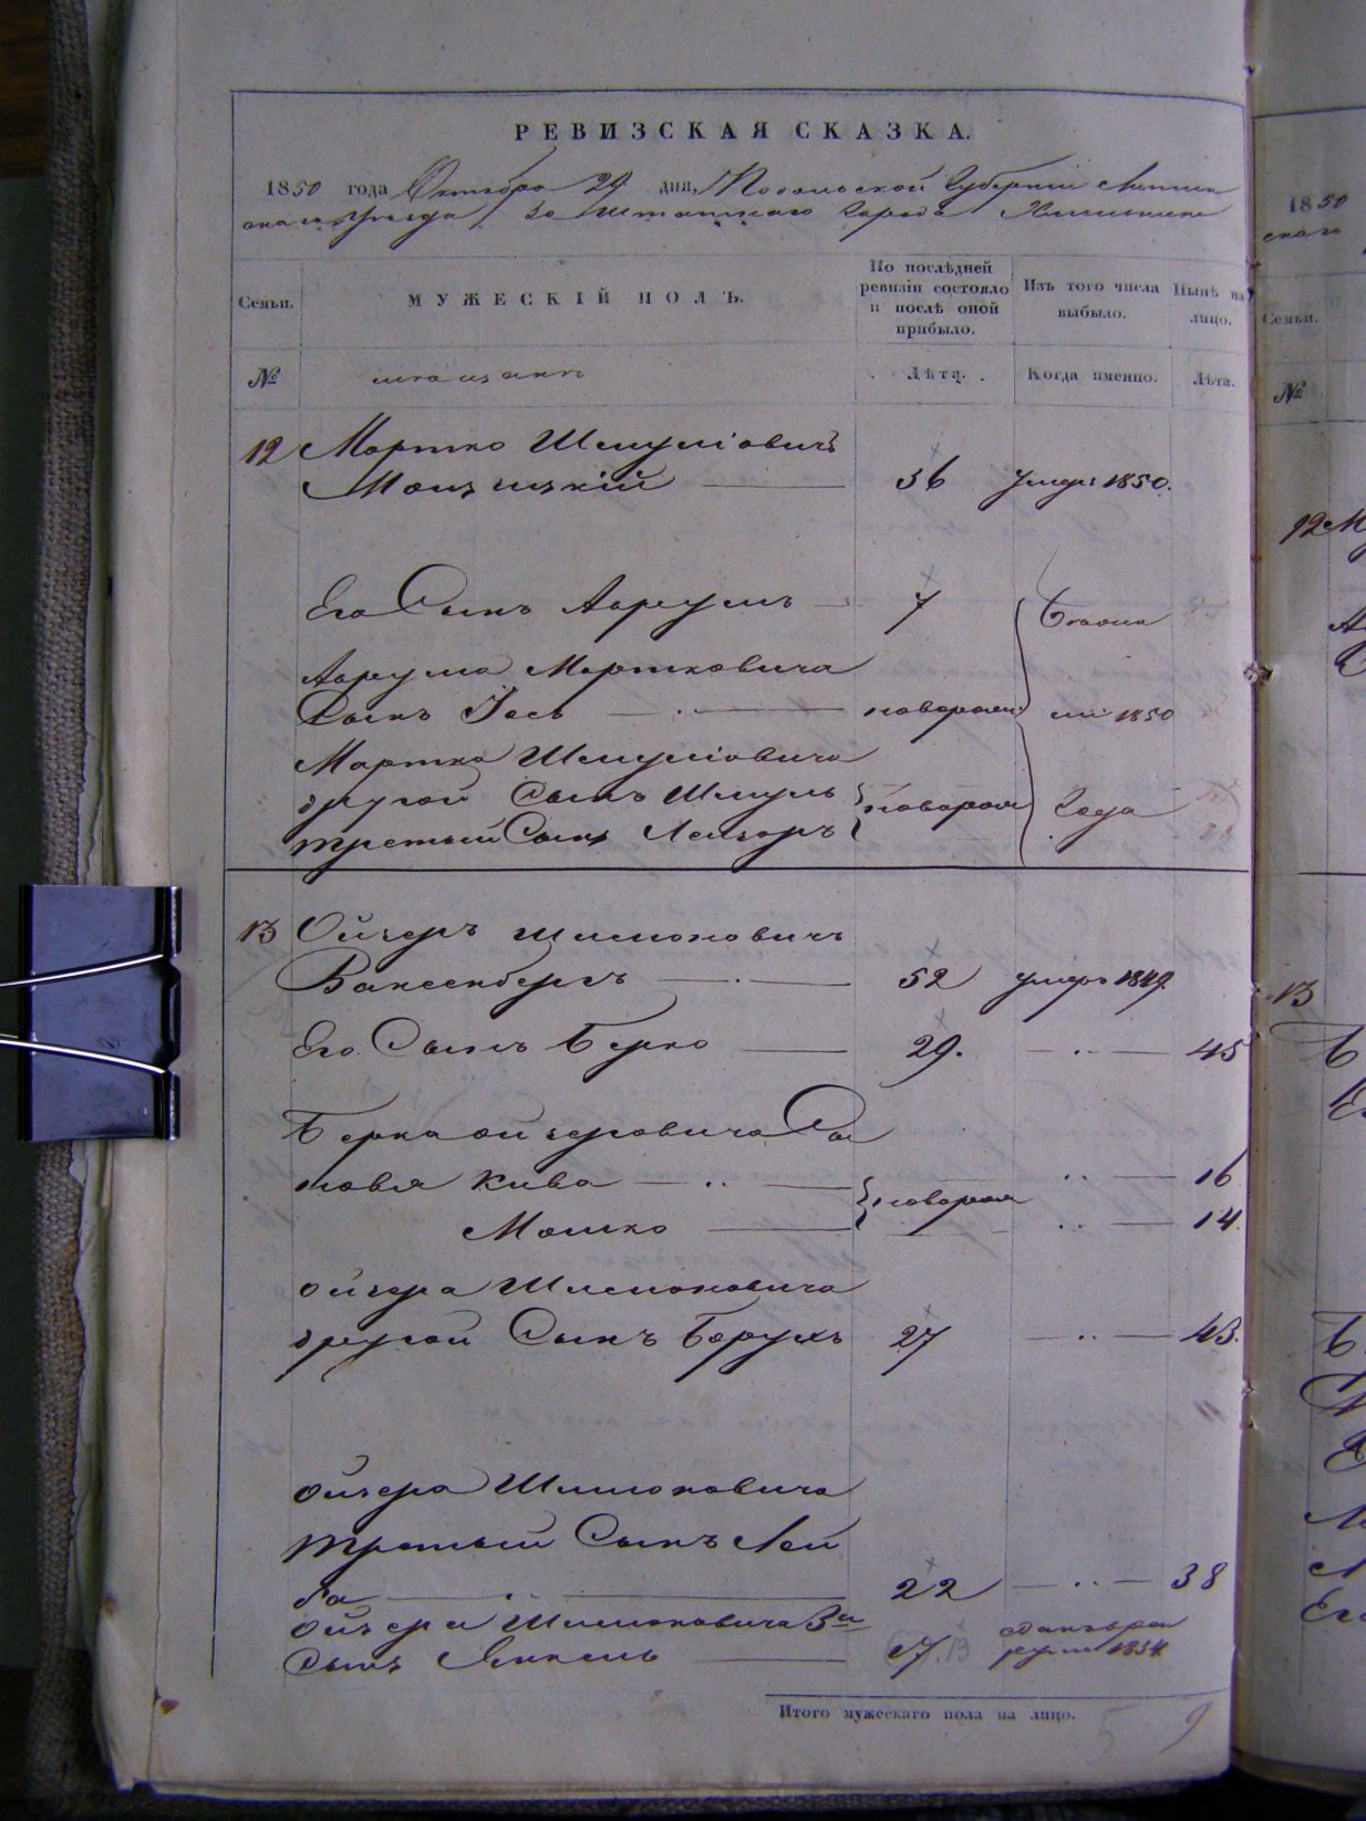 РЕВИЗСКАЯ СКАЗКА.
1850 года Октября 29 дня, Подольской Губернии Литин
скаго уезда, Заштатнаго Города Хмельника
Семьи. МУЖЕСКІЙ ПОЛЪ. По послѣдней ревизіи состояло и послѣ оной прибыло. Изъ того числа выбыло. Нынѣ на лицо.
№ мещанъ Лѣта. Когда именно. Лѣта.
12 Мортко Шмуліовичъ
36 умеръ 1850.
Его Сынъ Аврумъ 7
Аврума Мортковича
Сынъ Іось новорож:
Мортка Шмуліовича
другой Сынъ Шмуль новорож
третый Сынъ Лейзоръ
1850
Года
13 Ойзеръ Шимоновичъ
Ваксенбергъ 52 умеръ 1849
Его Сынъ Берко 29. 45
Берка Ойзеровича Сы
новья Кива 16
новорож
Мошко 14
Ойзера Шимоновича
другой Сынъ Борухъ 27 43.
Ойзера Шимоновича
третый Сынъ Лей
ба 22 38
Ойзера Шимоновича 3й
Сынъ Янкель
1834.
Итого мужескаго пола на лицо. 5 9
1850
скаго
Семьи.
№
12
13